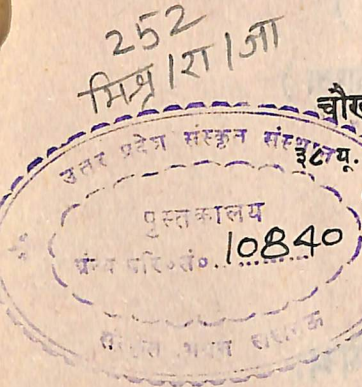 252
मिश्र/रा/जा
चौख
उत्तर प्रदेश संस्कृत संस्थान
३८ यू.
पुस्तकालय
ग्रन्थ परि०सं० 10840
संस्कृत भवन